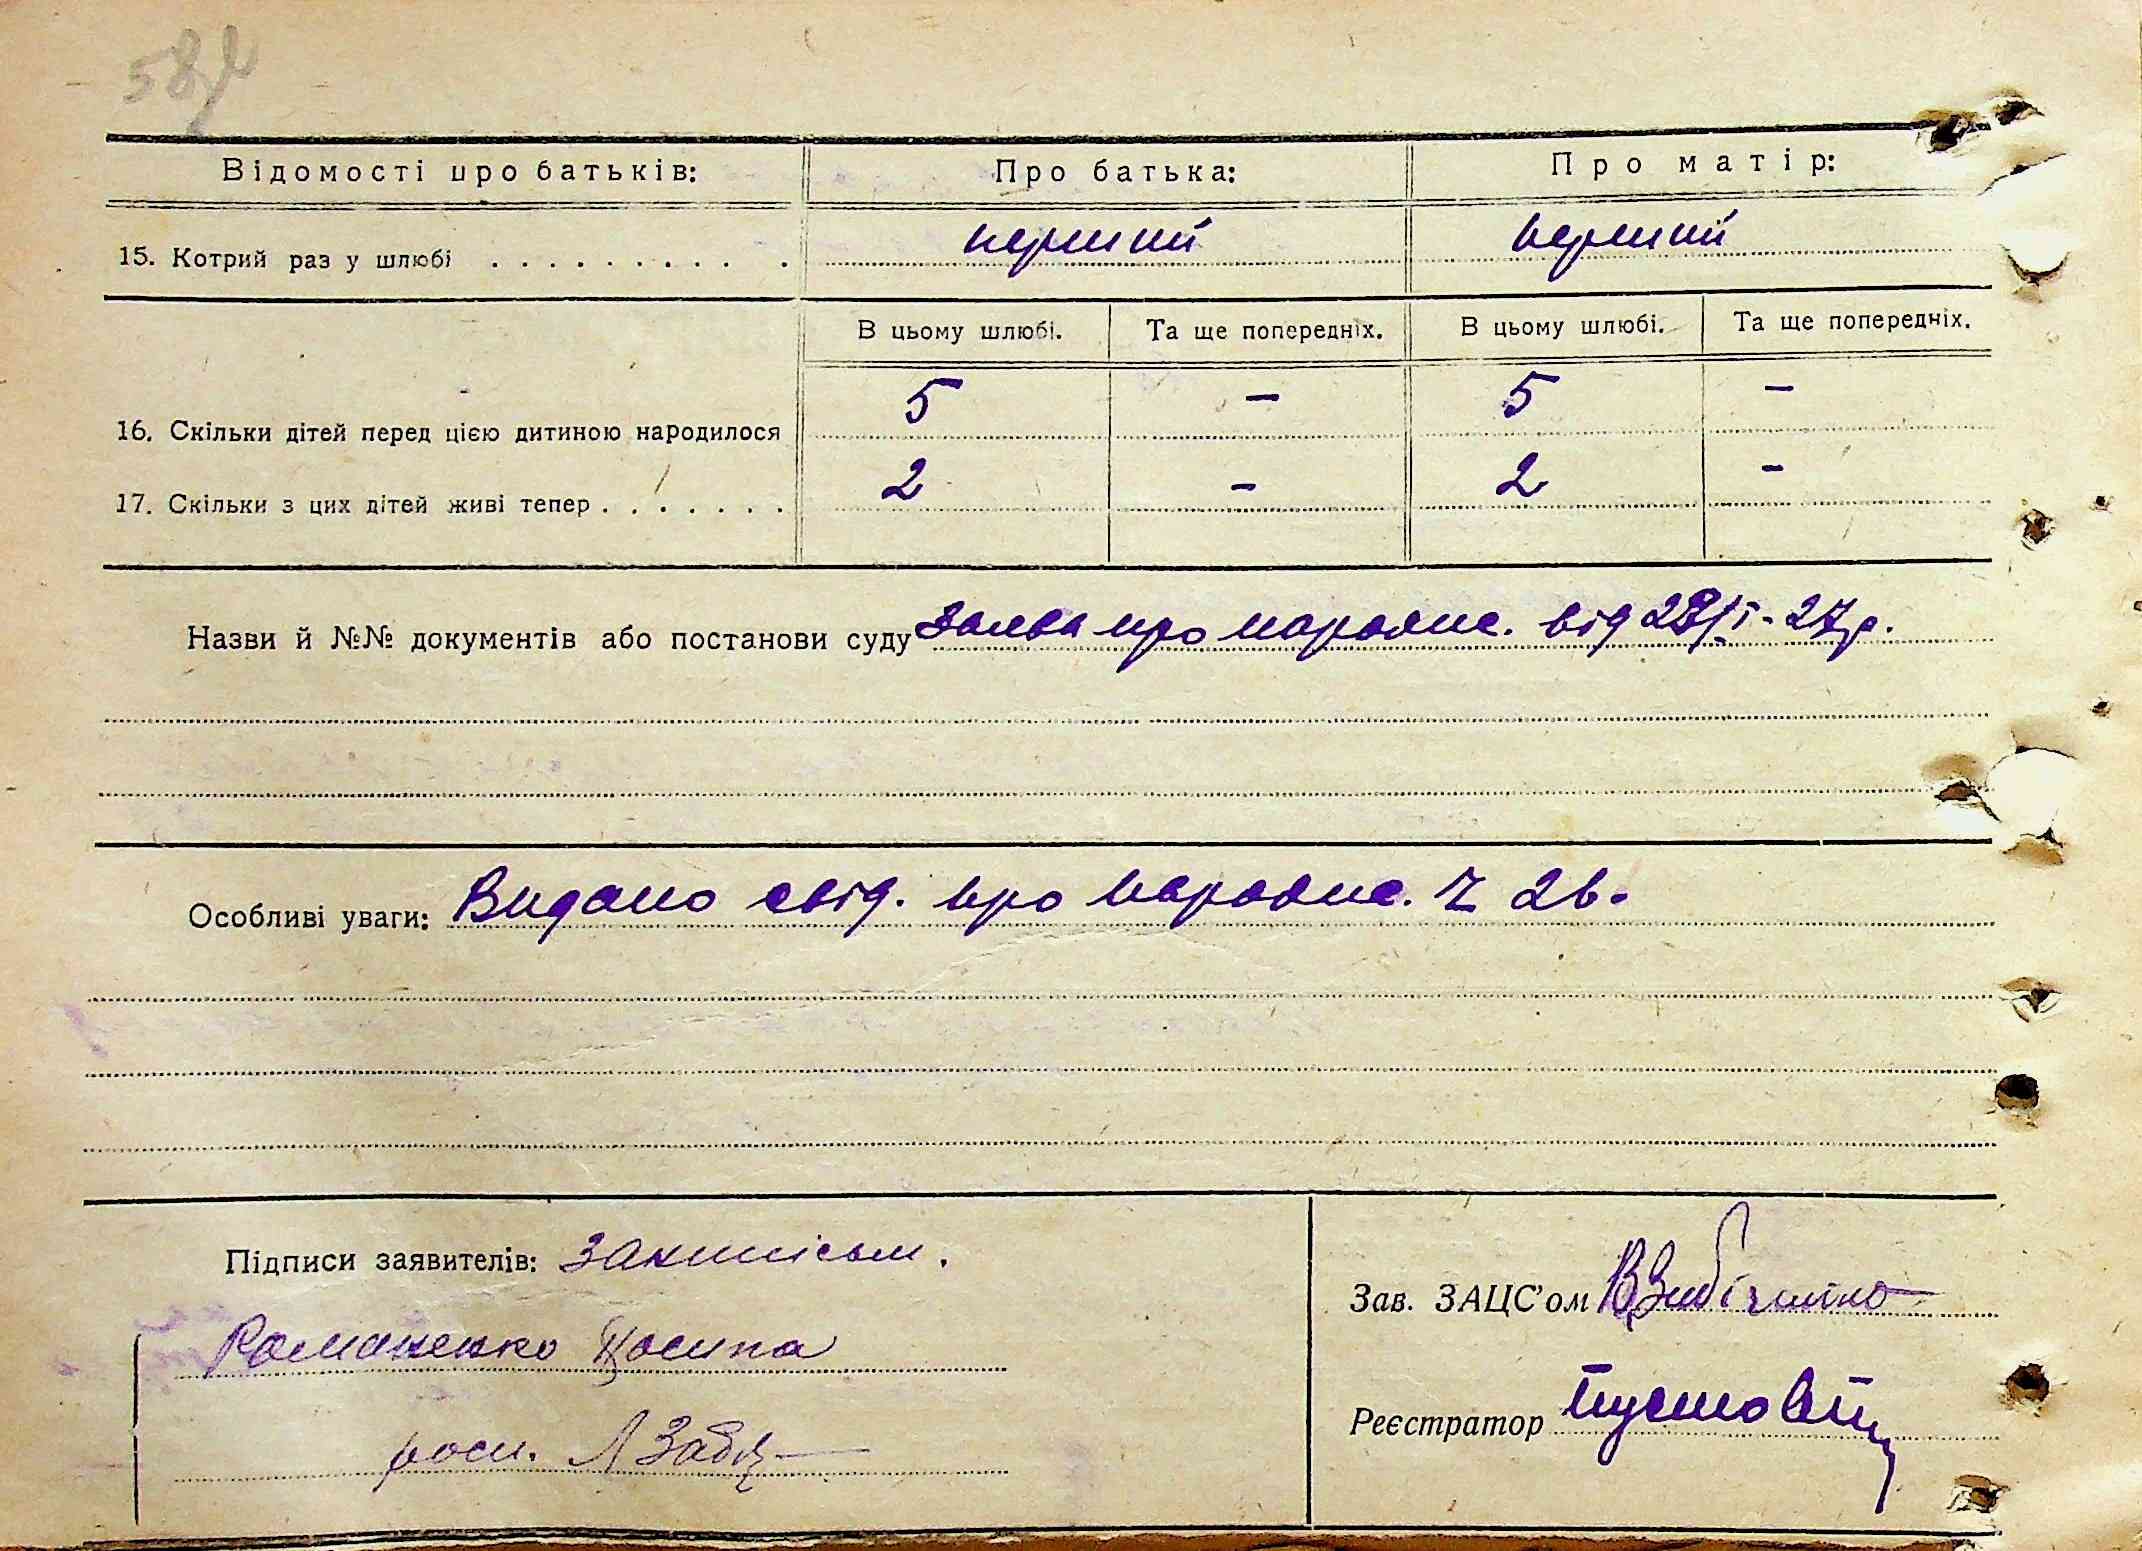 Відомості про батьків: Про батька: Про матір:
15. Котрий раз у шлюбі . . . . . . . . . . . перший перший
В цьому шлюбі. Та ще попередніх. В цьому шлюбі. Та ще попередніх.
16. Скільки дітей перед цією дитиною народилося 5 – 5 –
17. Скільки з цих дітей живі тепер . . . . . . . 2 – 2 –
Назви й №№ документів або постанови суду Заява про народже. від 28/I-27р.
Особливі уваги: Видано свід. про народже. Ч 26.
Підписи заявителів: За
Романенко Йосипа
Зав. ЗАЦС'ом
росп.
Реєстратор